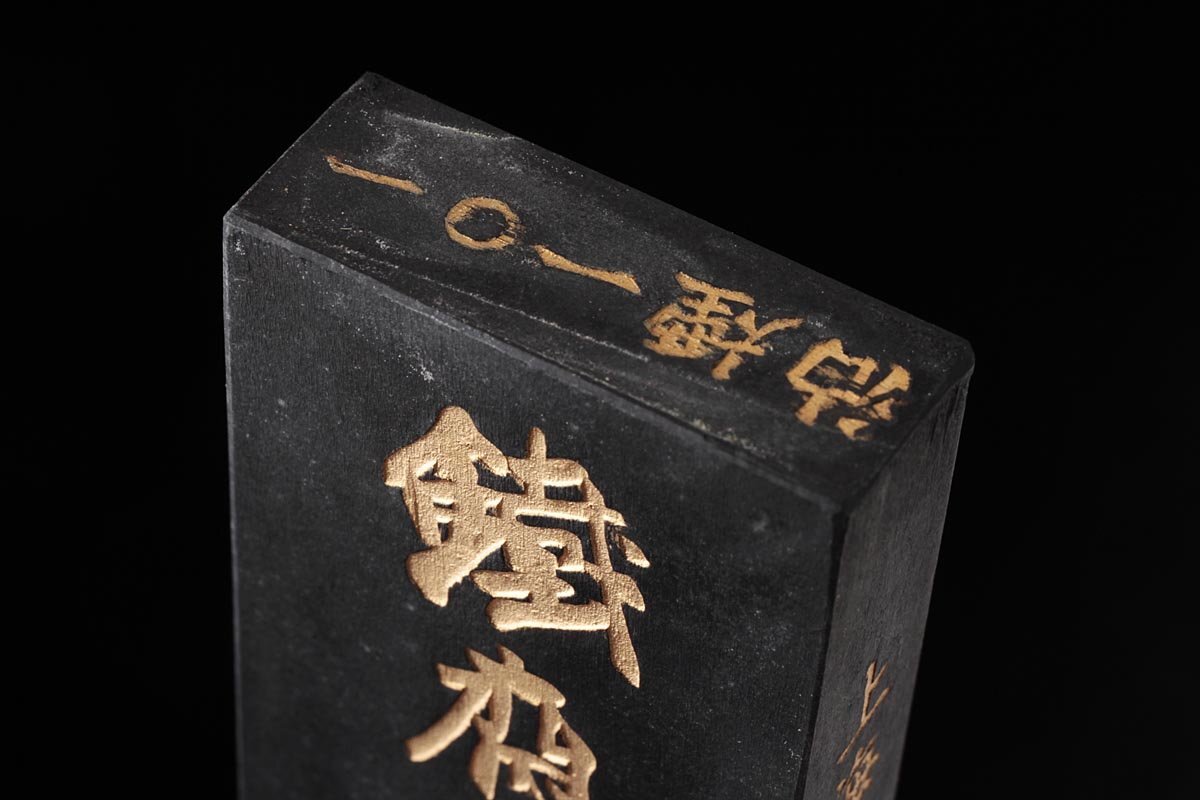 油煙一〇一
鐵
上海